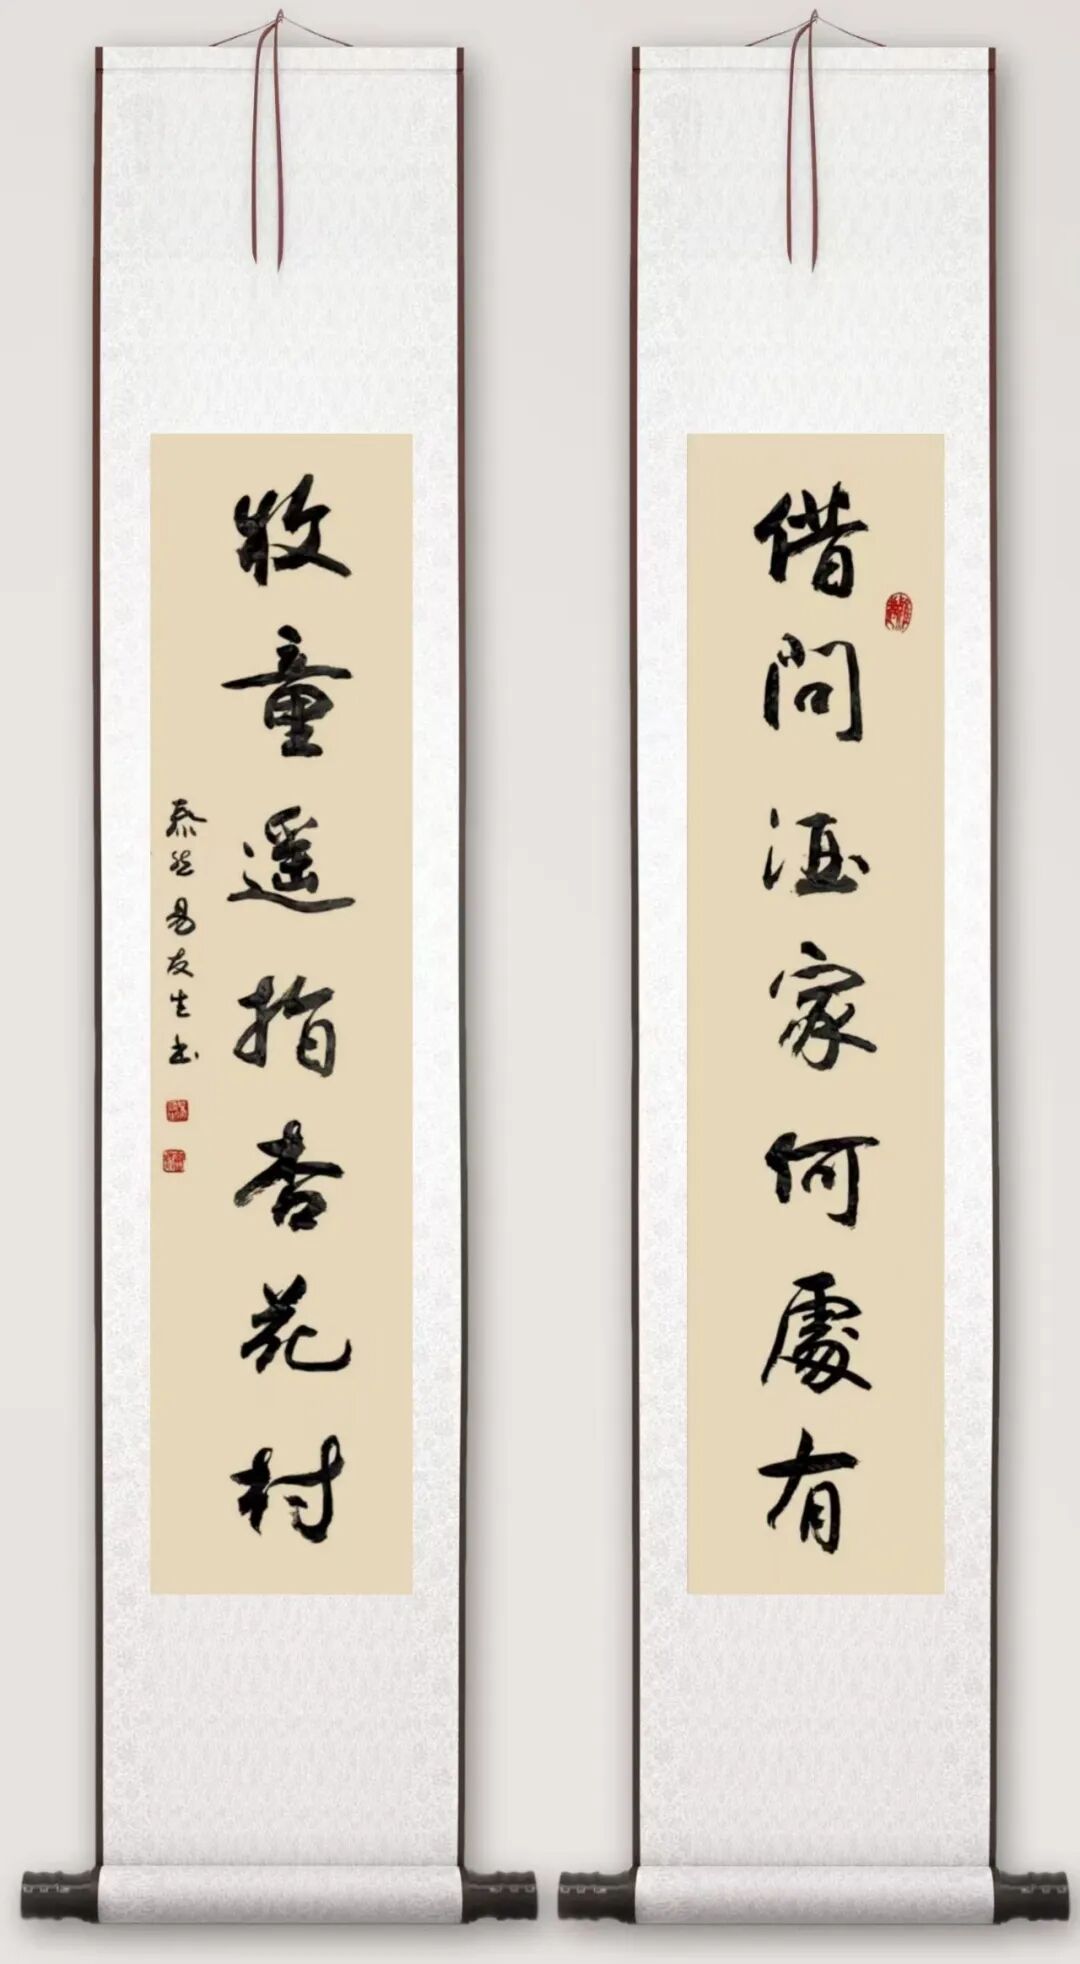 借问酒家何處有
牧童遥指杏花村
易友生书